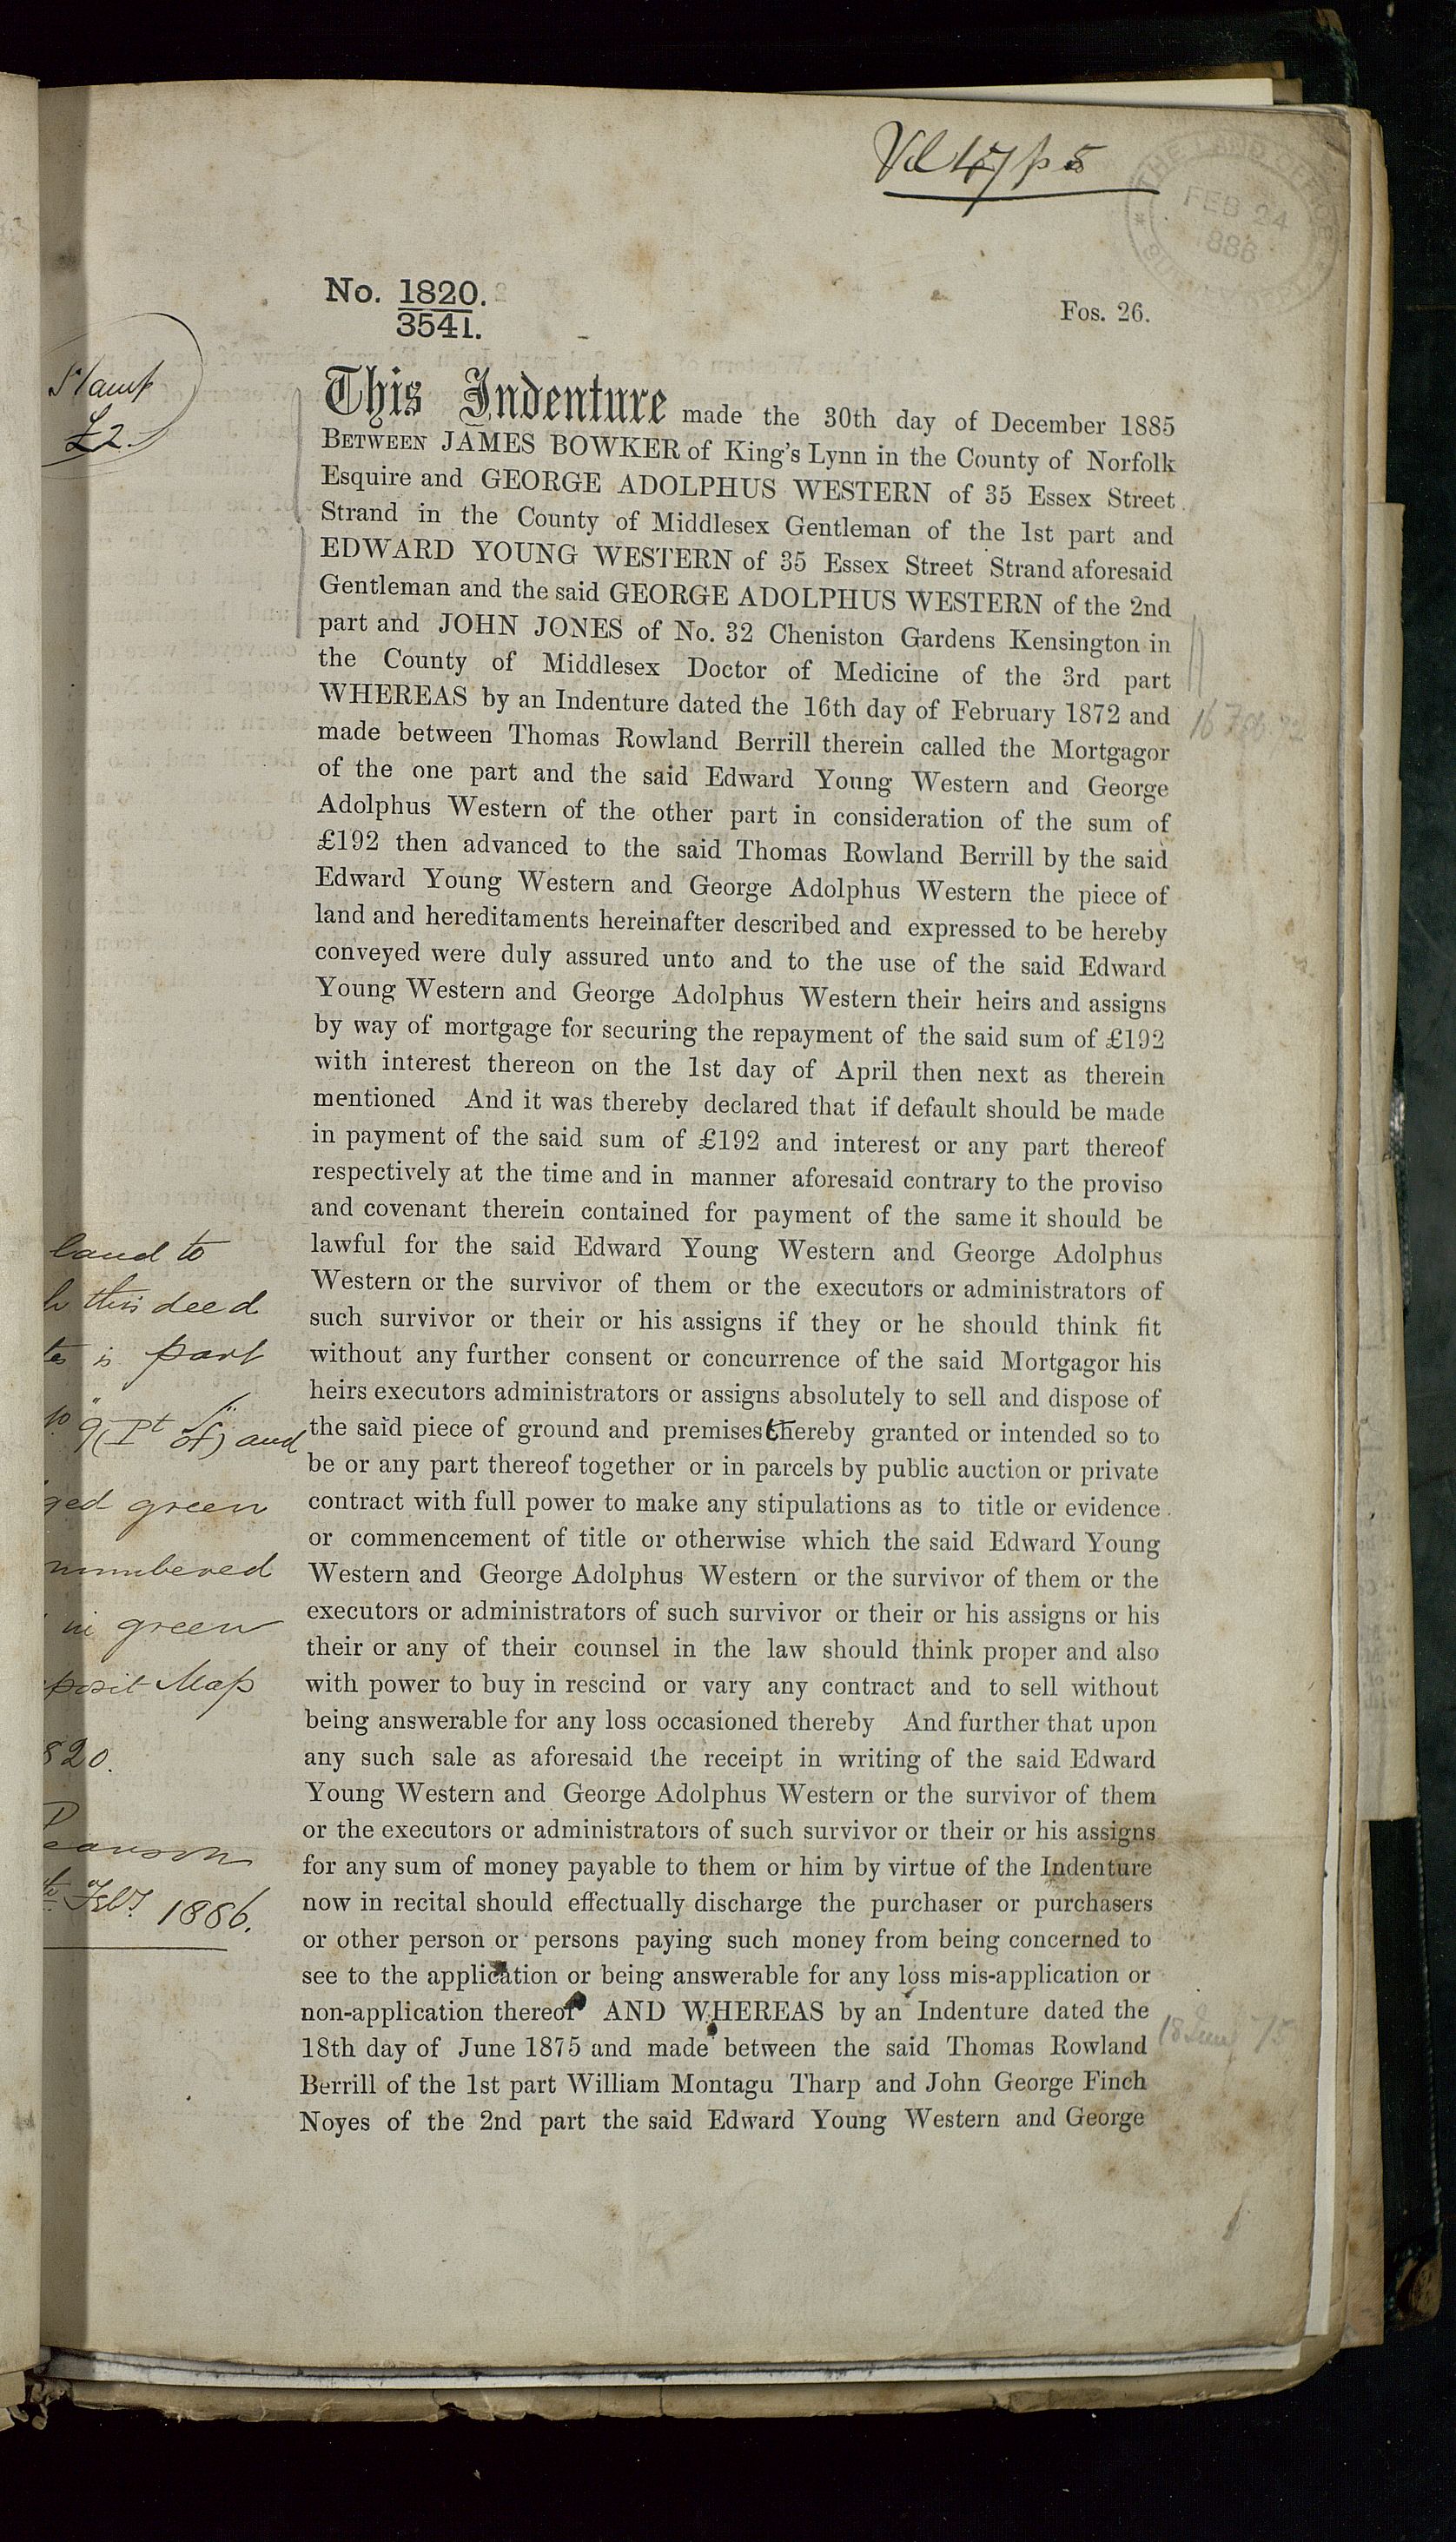 Vol 47 p 5
THE LAND
FEB 24
886
No. 1820.
3541.
Fos. 26.
Stamp
£2.
This Indenture made the 30th day of December 1885
BETWEEN JAMES BOWKER of King's Lynn in the County of Norfolk
Esquire and GEORGE ADOLPHUS WESTERN of 35 Essex Street
Strand in the County of Middlesex Gentleman of the 1st part and
EDWARD YOUNG WESTERN of 35 Essex Street Strand aforesaid
Gentleman and the said GEORGE ADOLPHUS WESTERN of the 2nd
part and JOHN JONES of No. 32 Cheniston Gardens Kensington in
the County of Middlesex Doctor of Medicine of the 3rd part
WHEREAS by an Indenture dated the 16th day of February 1872 and
16 Feb. 72
made between Thomas Rowland Berrill therein called the Mortgagor
of the one part and the said Edward Young Western and George
Adolphus Western of the other part in consideration of the sum of
£192 then advanced to the said Thomas Rowland Berrill by the said
Edward Young Western and George Adolphus Western the piece of
land and hereditaments hereinafter described and expressed to be hereby
conveyed were duly assured unto and to the use of the said Edward
Young Western and George Adolphus Western their heirs and assigns
by way of mortgage for securing the repayment of the said sum of £192
with interest thereon on the 1st day of April then next as therein
mentioned And it was thereby declared that if default should be made
in payment of the said sum of £192 and interest or any part thereof
respectively at the time and in manner aforesaid contrary to the proviso
and covenant therein contained for payment of the same it should be
lawful for the said Edward Young Western and George Adolphus
Western or the survivor of them or the executors or administrators of
such survivor or their or his assigns if they or he should think fit
without any further consent or concurrence of the said Mortgagor his
heirs executors administrators or assigns absolutely to sell and dispose of
the said piece of ground and premises thereby granted or intended so to
be or any part thereof together or in parcels by public auction or private
contract with full power to make any stipulations as to title or evidence
or commencement of title or otherwise which the said Edward Young
Western and George Adolphus Western or the survivor of them or the
executors or administrators of such survivor or their or his assigns or his
their or any of their counsel in the law should think proper and also
with power to buy in rescind or vary any contract and to sell without
being answerable for any loss occasioned thereby And further that upon
any such sale as aforesaid the receipt in writing of the said Edward
Young Western and George Adolphus Western or the survivor of them
or the executors or administrators of such survivor or their or his assigns
for any sum of money payable to them or him by virtue of the Indenture
now in recital should effectually discharge the purchaser or purchasers
or other person or persons paying such money from being concerned to
see to the application or being answerable for any loss mis-application or
non-application thereof AND WHEREAS by an Indenture dated the
18th day of June 1875 and made between the said Thomas Rowland
18 June 75
Berrill of the 1st part William Montagu Tharp and John George Finch
Noyes of the 2nd part the said Edward Young Western and George
land to
this deed
is part
9 (Pt of) and
ged green
numbered
in green
posit Map
820.
earson
Feby. 1886.